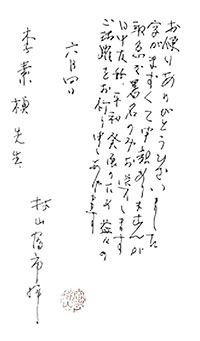 お便りありがとうございました
字がまずくて申訳ありませんが
取急ぎ署名のみお送りします
日中友好、平和発展のため益々の
ご活躍をお祈り申しあげます
六月四日
村山富市
李素楨先生